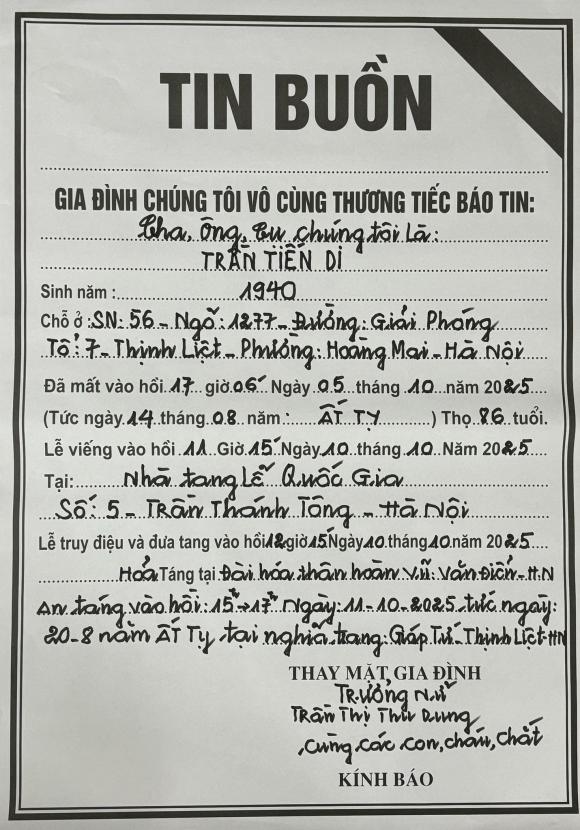 TIN BUỒN
GIA ĐÌNH CHÚNG TÔI VÔ CÙNG THƯƠNG TIẾC BÁO TIN:
Cha, Ông, Cụ chúng tôi Là:
TRẦN TIẾN DI
Sinh năm : 1940
Chỗ ở : SN: 56 - Ngõ: 1277 - Đường: Giải Phóng
Tổ: 7 - Thịnh Liệt - Phường: Hoàng Mai - Hà Nội
Đã mất vào hồi 17 giờ 06' Ngày 05 tháng 10 năm 2025
(Tức ngày 14 tháng 08 năm : ẤT TỴ ) Thọ 86 tuổi.
Lễ viếng vào hồi 11 Giờ 15' Ngày 10 tháng 10 Năm 2025
Tại: Nhà tang Lễ Quốc Gia
Số: 5 - Trần Thánh Tông - Hà Nội
Lễ truy điệu và đưa tang vào hồi 12 giờ 15' Ngày 10 tháng 10 năm 2025
Hỏa Táng tại Đài hóa thân hoàn vũ: Văn Điển - HN
An táng vào hồi: 15h→17h Ngày: 11-10-2025 tức ngày:
20-8 năm ẤT Tỵ tại nghĩa trang: Giáp Tứ - Thịnh Liệt - HN
THAY MẶT GIA ĐÌNH
Trưởng Nữ
Trần Thị Thu Dung
cùng các con, cháu, chắt
KÍNH BÁO